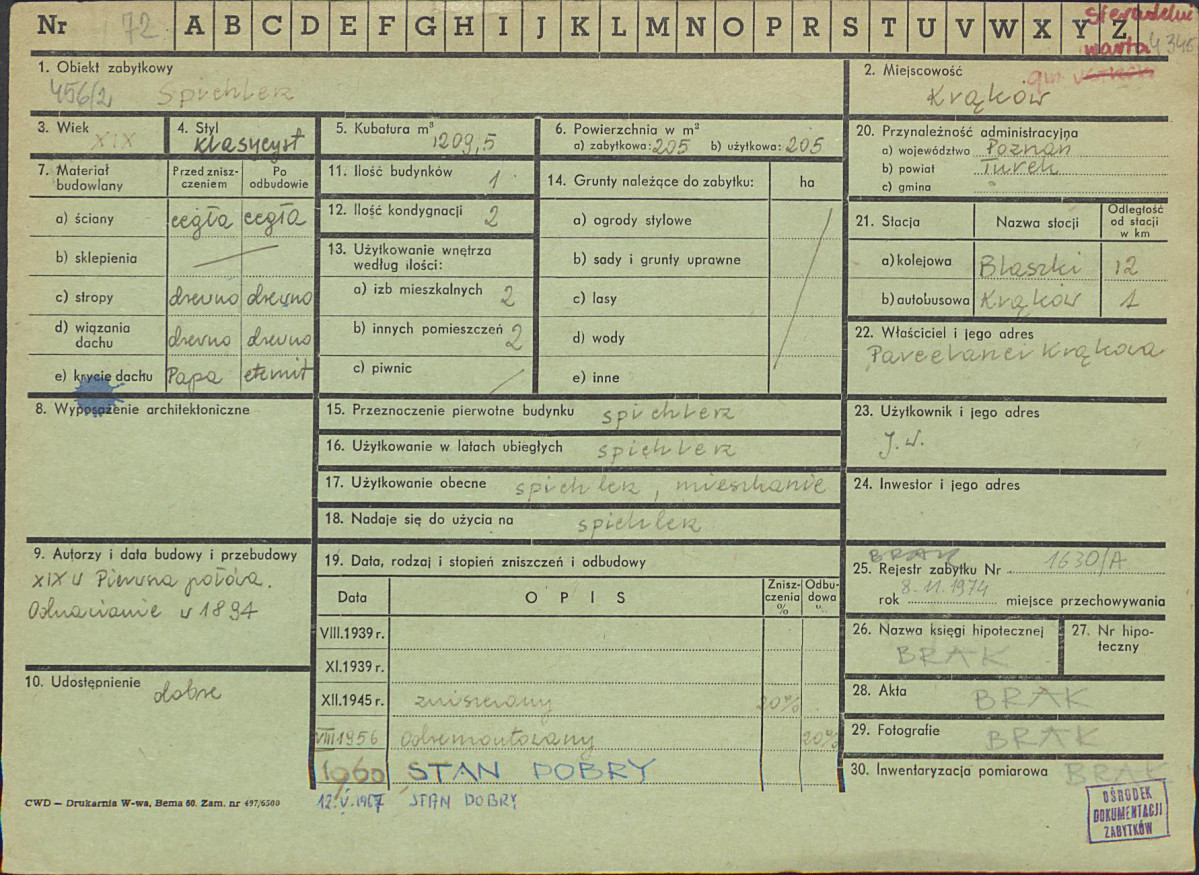 Nr 72. A B C D E F G H I J K L M N O P R S T U V W X Y Z
sieradzkie
warta 4345
1. Obiekt zabytkowy
456/2 Spichlerz
2. Miejscowość gm.
Krąków
3. Wiek
XIX
4. Styl
klasycyst
5. Kubatura m³
1209,5
6. Powierzchnia w m²
a) zabytkowa: 205 b) użytkowa: 205
20. Przynależność administracyjna
a) województwo Poznań
b) powiat Turek
c) gmina
7. Materiał budowlany
Przed zniszczeniem
Po odbudowie
a) ściany cegła cegła
b) sklepienia —
c) stropy drewno drewno
d) wiązania dachu drewno drewno
e) krycie dachu Papa eternit
11. Ilość budynków 1
12. Ilość kondygnacji 2
13. Użytkowanie wnętrza według ilości:
a) izb mieszkalnych 2
b) innych pomieszczeń 2
c) piwnic /
14. Grunty należące do zabytku: ha
a) ogrody stylowe
b) sady i grunty uprawne
c) lasy
d) wody
e) inne
21. Stacja Nazwa stacji Odległość od stacji w km
a) kolejowa Błaszki 12
b) autobusowa Krąków 1
22. Właściciel i jego adres
Parcelanci Krąkowa
8. Wyposażenie architektoniczne
15. Przeznaczenie pierwotne budynku spichlerz
16. Użytkowanie w latach ubiegłych spichlerz
17. Użytkowanie obecne spichlerz, mieszkanie
18. Nadaje się do użycia na spichlerz
23. Użytkownik i jego adres
J.w.
24. Inwestor i jego adres
9. Autorzy i data budowy i przebudowy
XIX w Pierwsza połowa.
Odnawianie w 1894
19. Data, rodzaj i stopień zniszczeń i odbudowy
Data OPIS Zniszczenia % Odbudowa %
VIII.1939 r.
XI.1939 r.
XII.1945 r. zniszczony 20%
VIII 1956 Odremontowany 20%
1960 STAN DOBRY
12.V.1967 STAN DOBRY
BRAK
25. Rejestr zabytku Nr 1630/A
rok 8.11.1974 miejsce przechowywania
26. Nazwa księgi hipotecznej
BRAK
27. Nr hipoteczny
10. Udostępnienie dobre
28. Akta BRAK
29. Fotografie BRAK
30. Inwentaryzacja pomiarowa BRAK
CWD — Drukarnia W-wa, Bema 60. Zam. nr 497/6500
OŚRODEK
DOKUMENTACJI
ZABYTKÓW